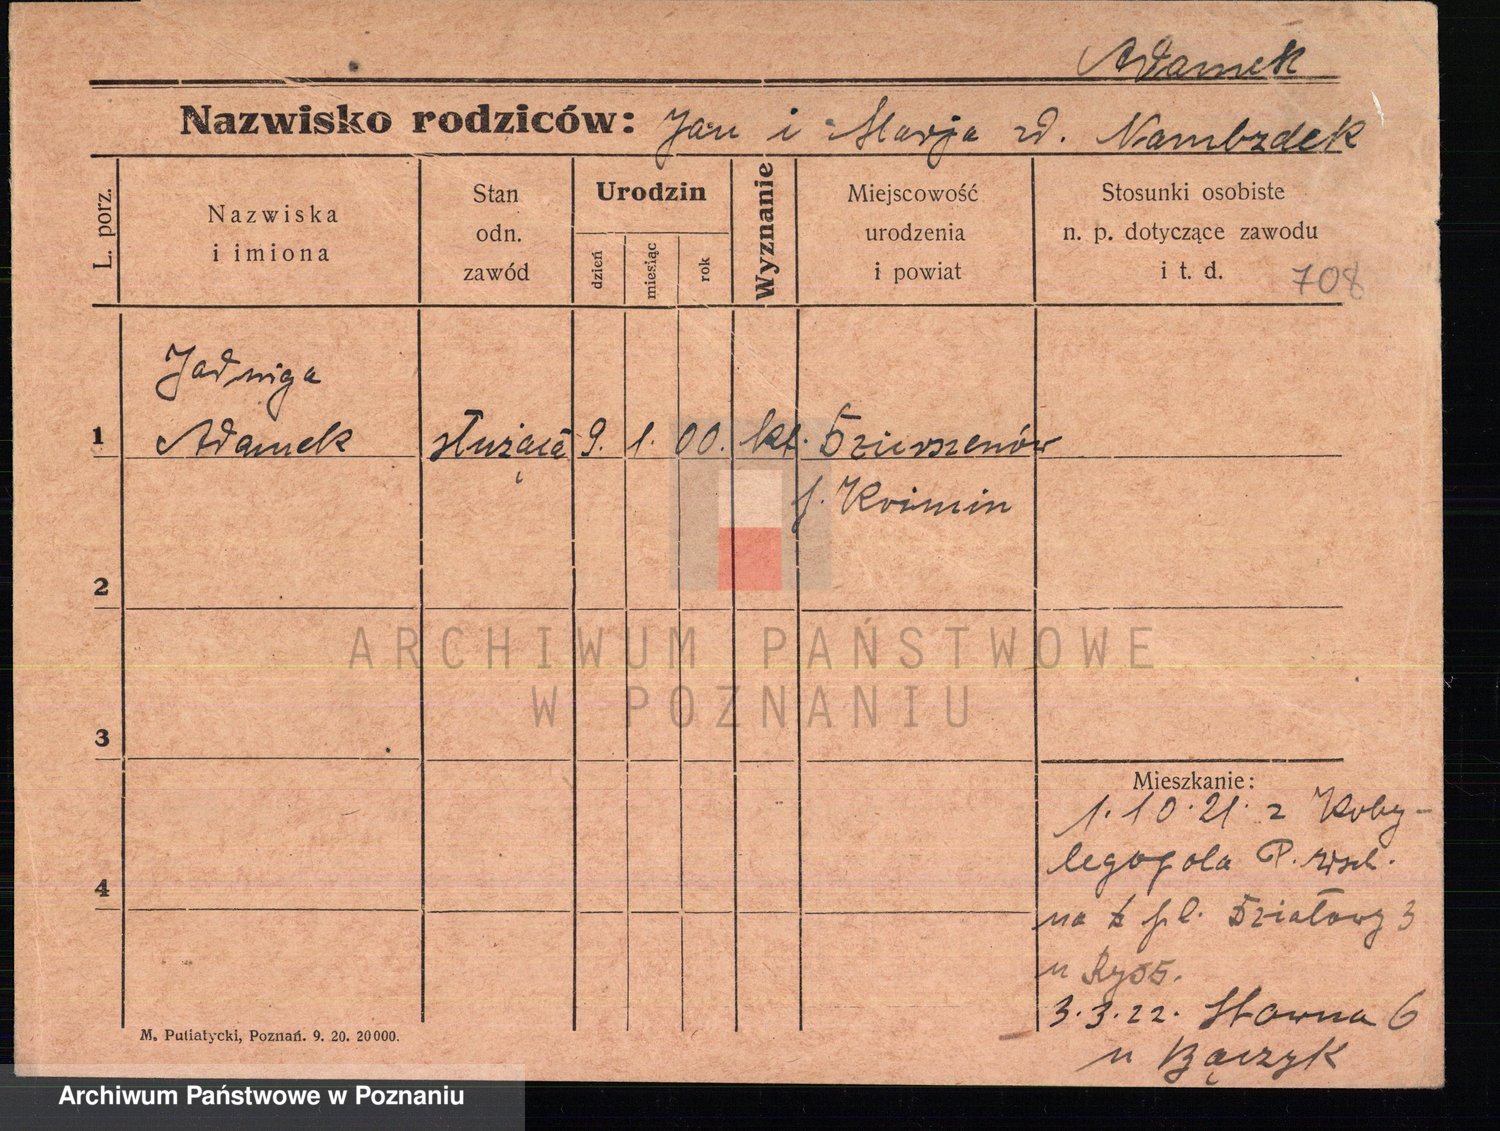 Adamek
Nazwisko rodziców: Jan i Marja zd.
L. porz.
Nazwiska
i imiona
Stan
odn.
zawód
Urodzin
dzień
miesiąc
rok
Wyznanie
Miejscowość
urodzenia
i powiat
Stosunki osobiste
n. p. dotyczące zawodu
i t. d.
708
Jadwiga
1 Adamek służąca 9. 1. 00. kt.
2
3
4
ARCHIWUM PAŃSTWOWE
W POZNANIU
Mieszkanie:
1.10.21. z Koby-
legopola P. wsch.
na pl. Działowy 3
u
3.3.22. 6
u
M. Putiatycki, Poznań. 9. 20. 20000.
Archiwum Państwowe w Poznaniu